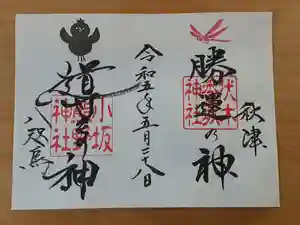 秋津
勝運の神
令和五年五月二十八日
導きの神
小坂
熊野
神社
八咫烏